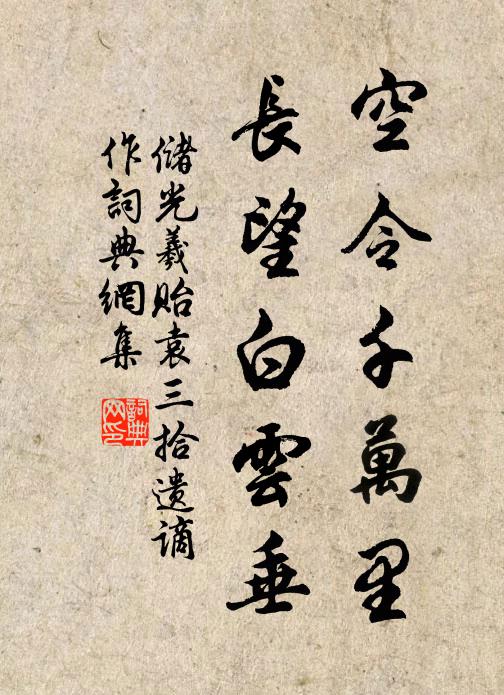 空令千萬里
長望白雲垂
儲光羲貽袁三拾遺謫
作詞典網集
詞典
网印